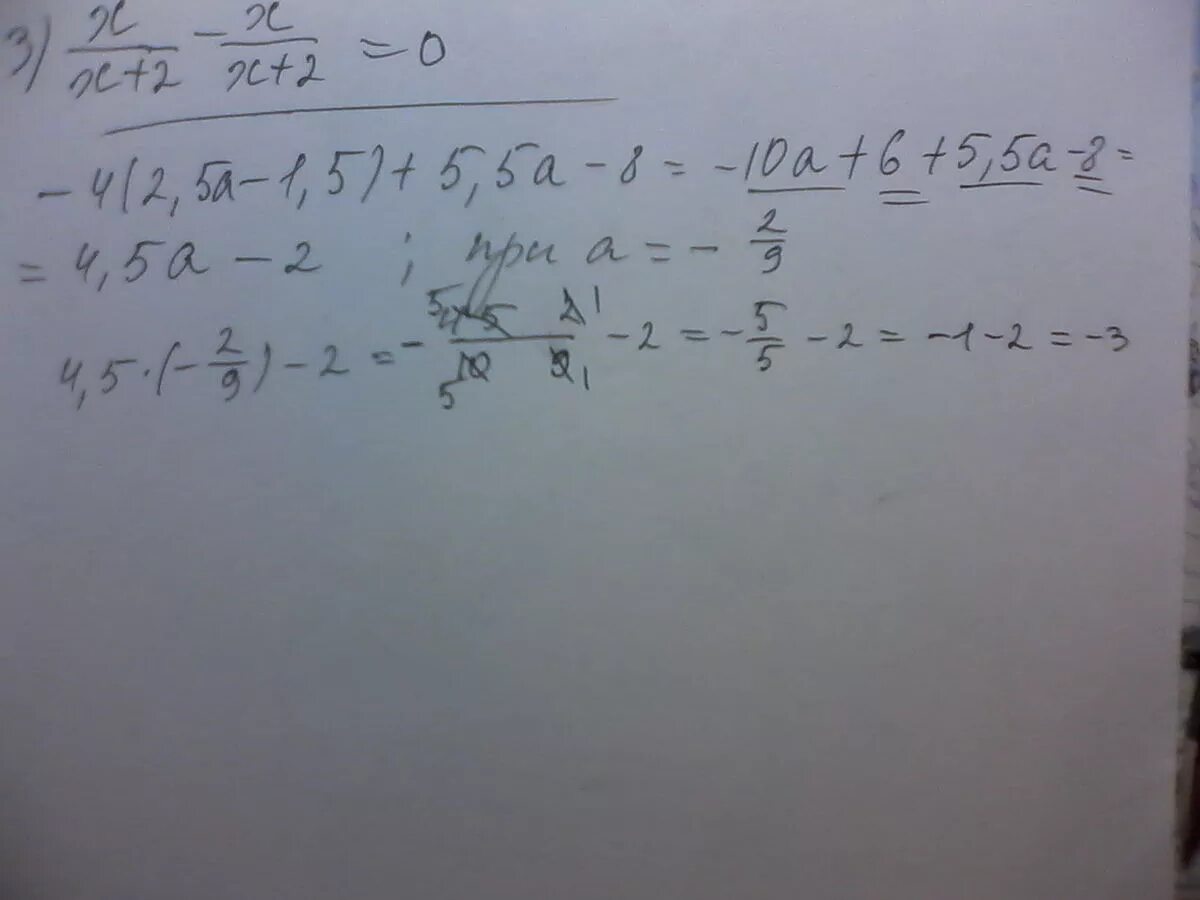 3) x/(x+2) - x/(x+2) = 0
-4(2,5a-1,5)+5,5a-8 = -10a+6+5,5a-8=
= 4,5a-2 ; при a = -2/9
4,5·(-2/9)-2 = -(45 2)/(10 9)-2 = -5/5-2 = -1-2 = -3